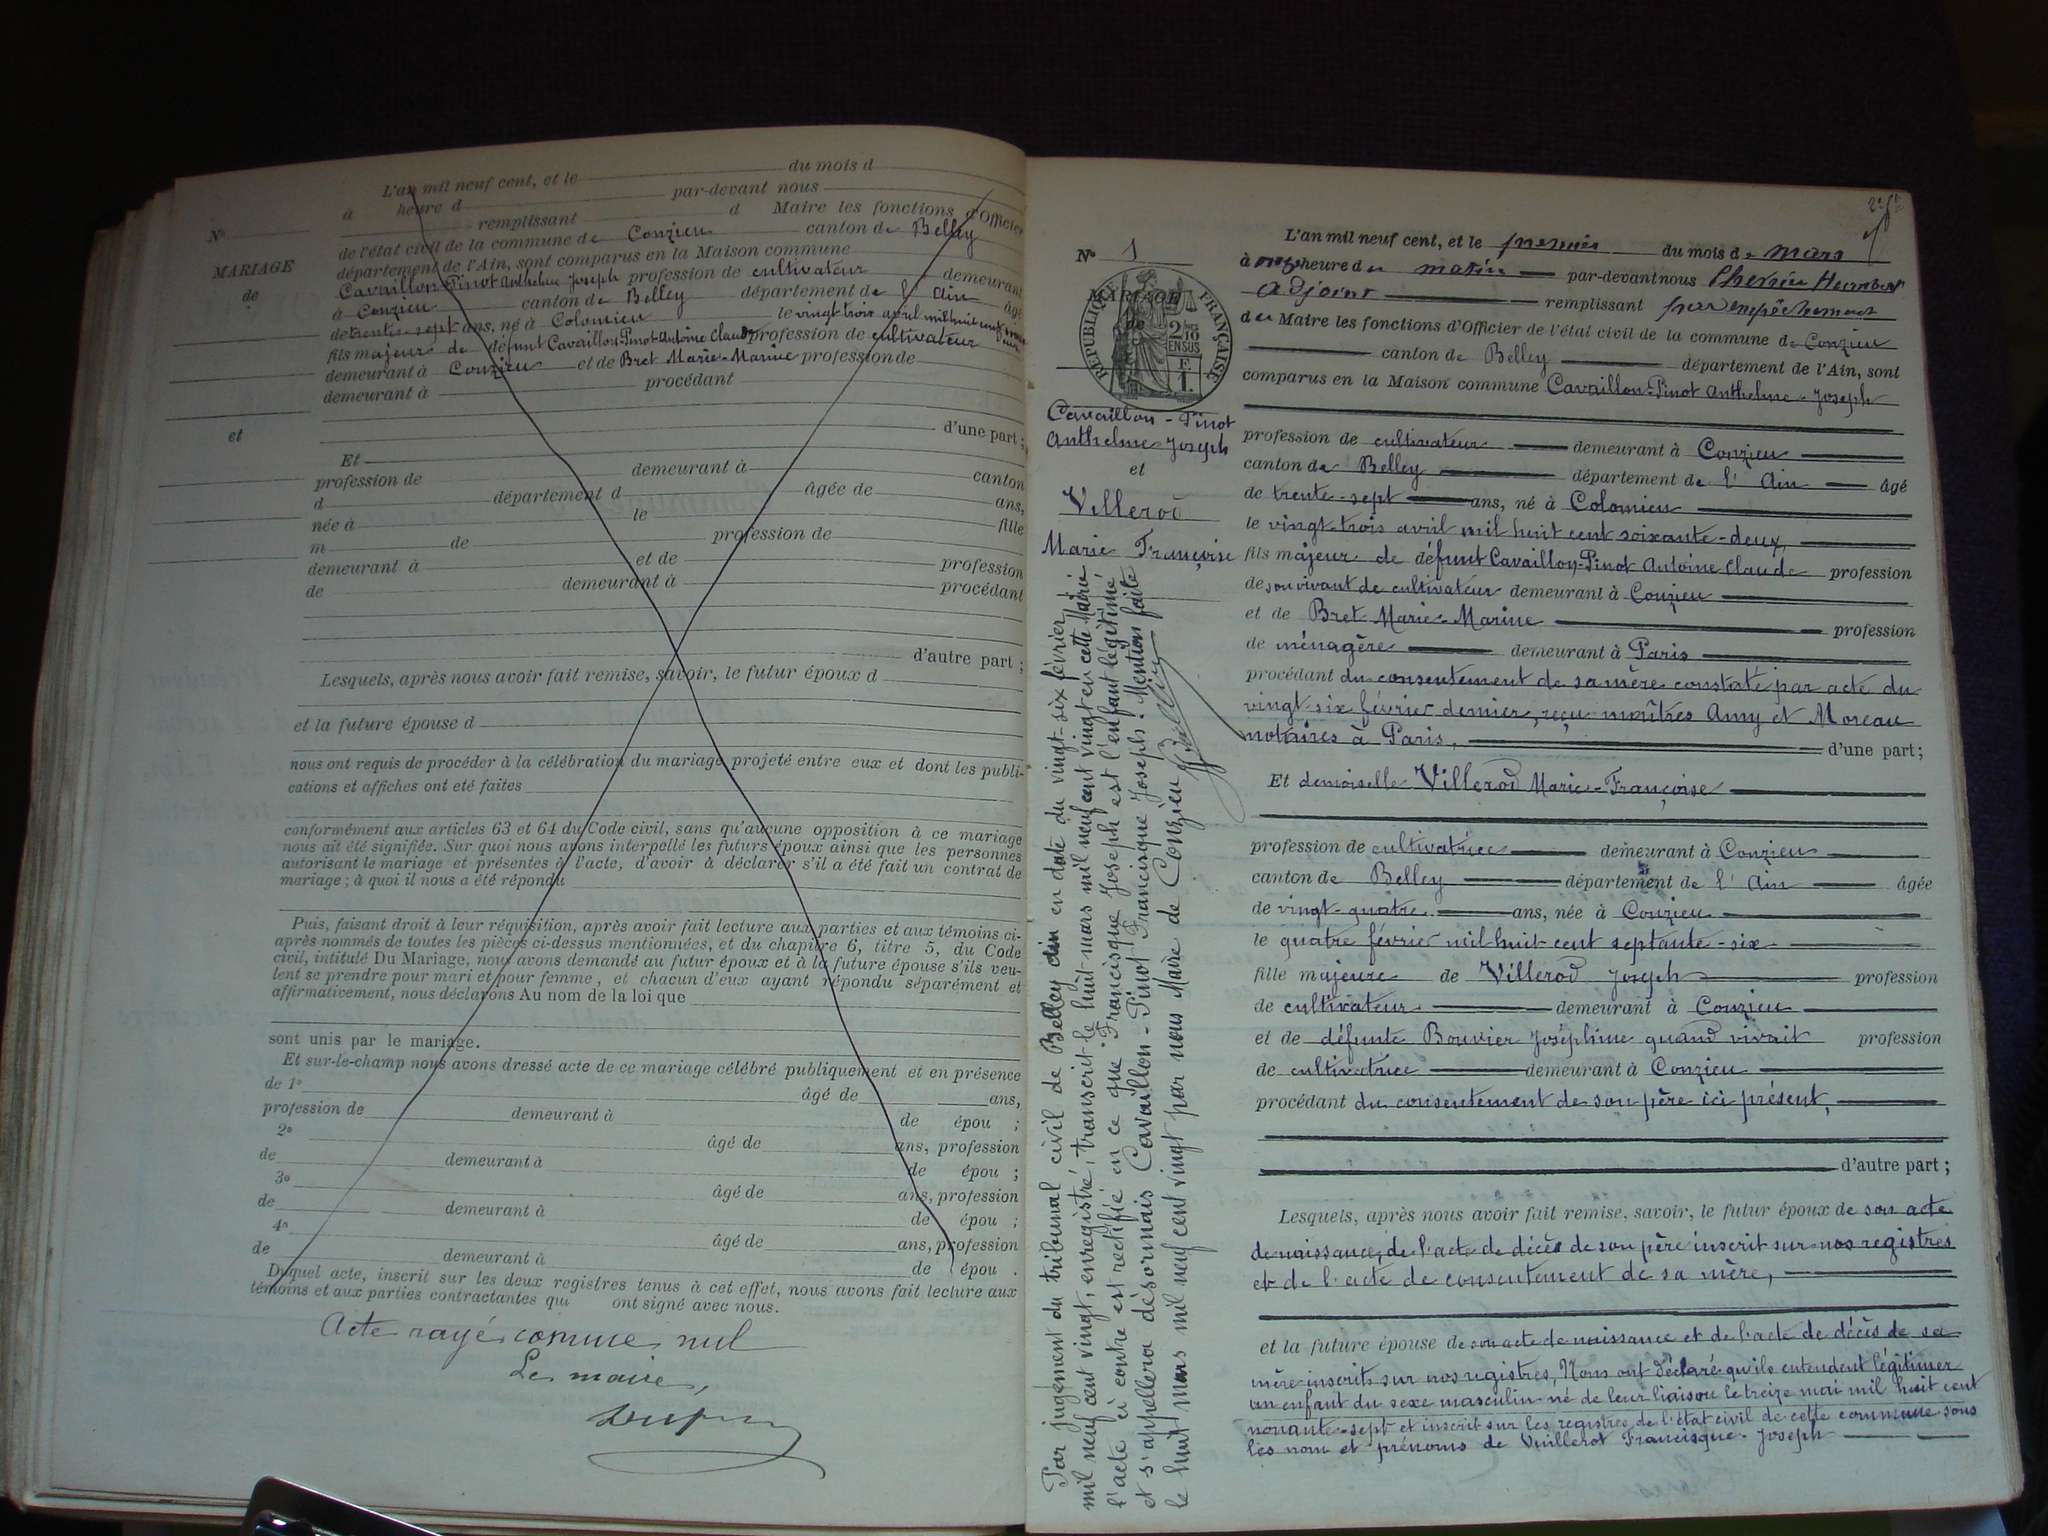 L'an mil neuf cent, et le du mois d
à heure d par-devant nous
remplissant d Maire les fonctions d'Officier
de l'état civil de la commune de Conzieu canton de Belley
département de l'Ain, sont comparus en la Maison commune
Cavaillon-Pinot Anthelme Joseph profession de cultivateur demeurant
à Conzieu canton de Belley département de l'Ain âgé
de trente-sept ans, né à Colomieu le vingt trois avril mil huit cent
fils majeur de défunt Cavaillon-Pinot Antoine Claude profession de cultivateur
demeurant à Conzieu et de Bret Marie-Marine profession de
demeurant à procédant
d'une part;
Nº
MARIAGE
de
et
Et
profession de demeurant à canton
d département d âgée de ans,
née à le fille
m de profession de
demeurant à et de profession
de demeurant à procédant
d'autre part;
Lesquels, après nous avoir fait remise, savoir, le futur époux d
et la future épouse d
nous ont requis de procéder à la célébration du mariage projeté entre eux et dont les publi-
cations et affiches ont été faites
conformément aux articles 63 et 64 du Code civil, sans qu'aucune opposition à ce mariage
nous ait été signifiée. Sur quoi nous avons interpellé les futurs époux ainsi que les personnes
autorisant le mariage et présentes à l'acte, d'avoir à déclarer s'il a été fait un contrat de
mariage; à quoi il nous a été répondu
Puis, faisant droit à leur réquisition, après avoir fait lecture aux parties et aux témoins ci-
après nommés de toutes les pièces ci-dessus mentionnées, et du chapitre 6, titre 5, du Code
civil, intitulé Du Mariage, nous avons demandé au futur époux et à la future épouse s'ils veu-
lent se prendre pour mari et pour femme, et chacun d'eux ayant répondu séparément et
affirmativement, nous déclarons Au nom de la loi que
sont unis par le mariage.
Et sur-le-champ nous avons dressé acte de ce mariage célébré publiquement et en présence
de 1º âgé de ans,
profession de demeurant à de épou ;
2º âgé de ans, profession
de demeurant à de épou ;
3º âgé de ans, profession
de demeurant à de épou ;
4º âgé de ans, profession
de demeurant à de épou .
Duquel acte, inscrit sur les deux registres tenus à cet effet, nous avons fait lecture aux
témoins et aux parties contractantes qui ont signé avec nous.
Acte rayé comme nul
Le maire,
Nº 1
MARIAGE
de
RÉPUBLIQUE FRANÇAISE
2/10
EN SUS
Cavaillon-Pinot
Anthelme-Joseph
et
Villerod
Marie Françoise
Par jugement du tribunal civil de Belley din en date du vingt-six février
mil neuf cent vingt, enregistré, transcrit le huit mars mil neuf cent vingt en cette Mairie
l'acte ci contre est rectifié en ce que Francisque Joseph est l'enfant légitimé
et s'appellera désormais Cavaillon-Pinot Francisque Joseph. Mention faite
le huit mars mil neuf cent vingt par nous Maire de Conzieu
L'an mil neuf cent, et le premier du mois de mars
à onze heure du matin par-devant nous
adjoint remplissant par empêchement
du Maire les fonctions d'Officier de l'état civil de la commune de Conzieu
canton de Belley département de l'Ain, sont
comparus en la Maison commune Cavaillon-Pinot Anthelme-Joseph
profession de cultivateur demeurant à Conzieu
canton de Belley département de l'Ain âgé
de trente-sept ans, né à Colomieu
le vingt-trois avril mil huit cent soixante-deux,
fils majeur de défunt Cavaillon-Pinot Antoine Claude profession
de son vivant de cultivateur demeurant à Conzieu
et de Bret Marie-Marine profession
de ménagère demeurant à Paris
procédant du consentement de sa mère constaté par acte du
vingt-six février dernier, reçu maîtres Amy et Moreau
notaires à Paris, d'une part;
Et demoiselle Villerod Marie-Françoise
profession de cultivatrice demeurant à Conzieu
canton de Belley département de l'Ain âgée
de vingt-quatre ans, née à Conzieu
le quatre février mil huit cent septante-six
fille majeure de Villerod Joseph profession
de cultivateur demeurant à Conzieu
et de défunte Bouvier Joséphine quand vivait profession
de cultivatrice demeurant à Conzieu
procédant du consentement de son père ici présent,
d'autre part;
Lesquels, après nous avoir fait remise, savoir, le futur époux de son acte
de naissance, de l'acte de décès de son père inscrit sur nos registres
et de l'acte de consentement de sa mère,
et la future épouse de son acte de naissance et de l'acte de décès de sa
mère inscrits sur nos registres, Nous ont déclaré qu'ils entendent légitimer
un enfant du sexe masculin né de leur liaison le treize mai mil huit cent
nonante-sept et inscrit sur les registres de l'état civil de cette commune sous
les nom et prénoms de Vuillerot Francisque-Joseph